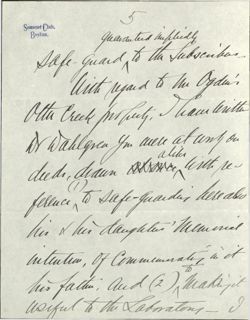 5
Somerset Club,
Boston.
Guaranteed implicitly
Safe-guard, to the Subscribers
With regard to Mr Ogden's
Otter Creek property, I have written
Dr Wahlgren
deeds, drawn alike with re-
ference (1) to safe-guarding here also
his & his daughter's Memorial
intention, of Commemorating in it
his father; and (2) to making it
useful to the Laboratory — I